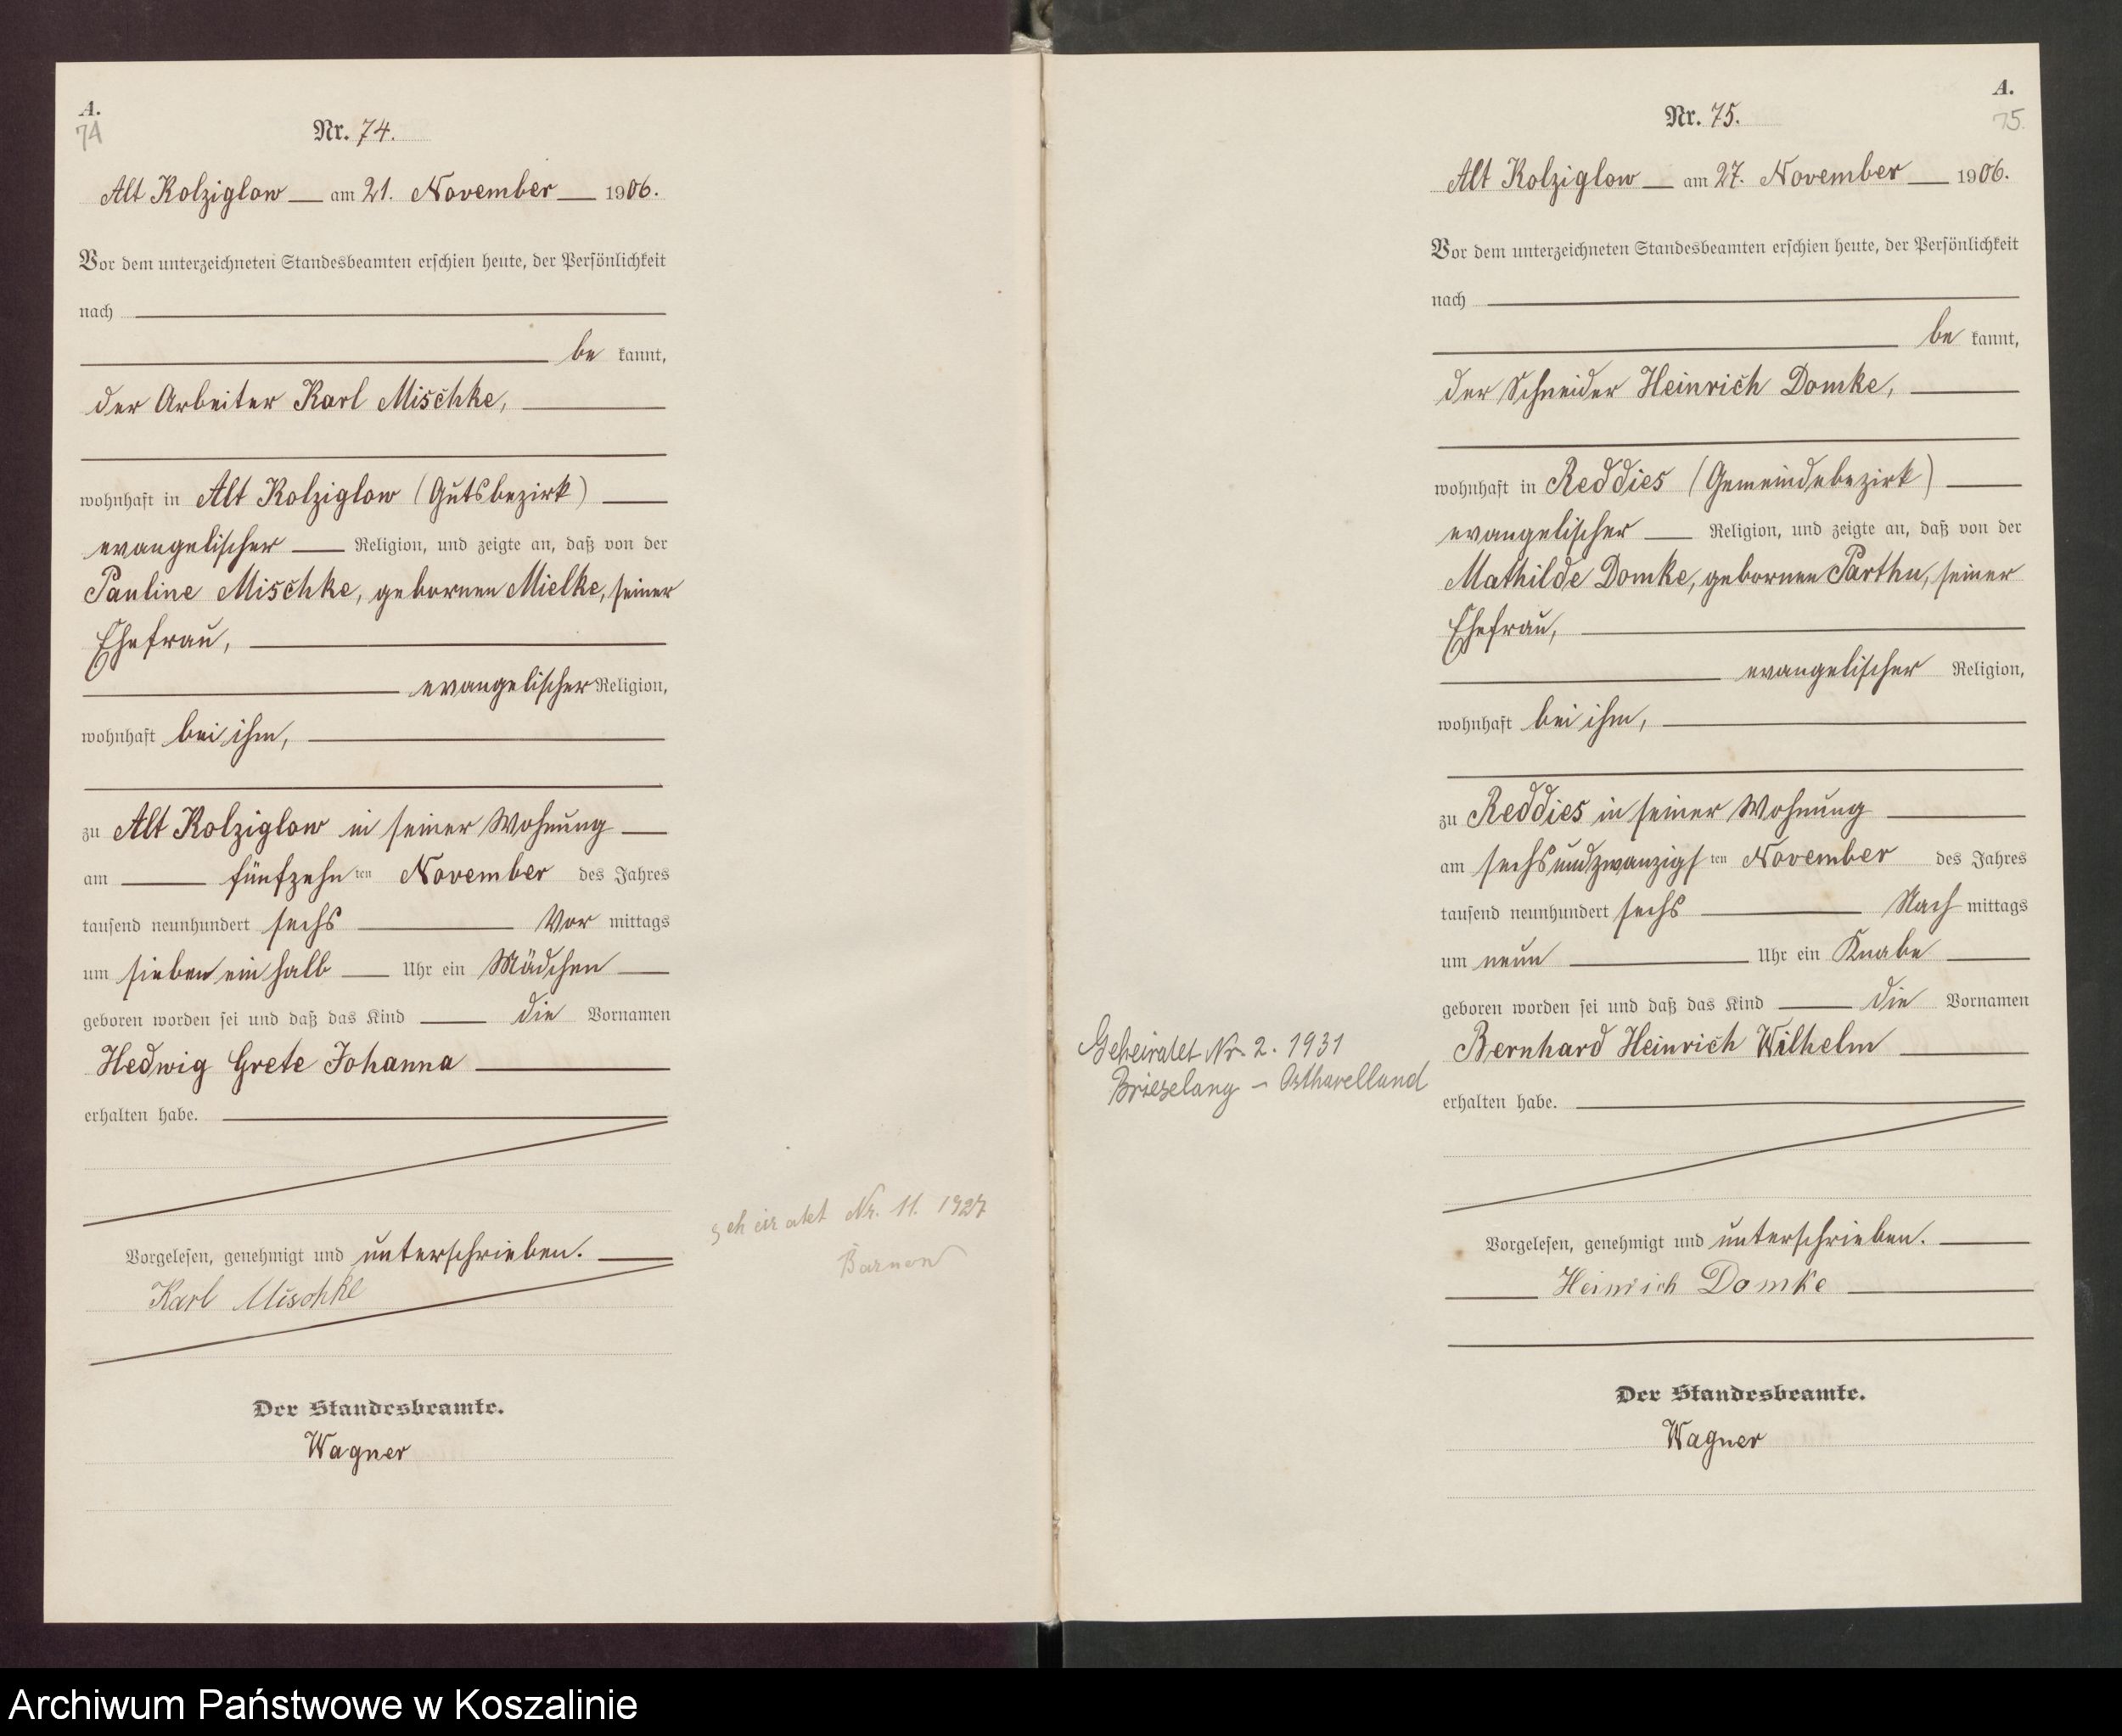 A.
74
Nr. 74.
Alt Kolziglow am 21. November 1906.
Vor dem unterzeichneten Standesbeamten erschien heute, der Persönlichkeit
nach
be kannt,
der Arbeiter Karl Mischke,
wohnhaft in Alt Kolziglow (Gutsbezirk)
evangelischer Religion, und zeigte an, daß von der
Pauline Mischke, gebornen Mielke, seiner
Ehefrau,
evangelischer Religion,
wohnhaft bei ihm,
zu Alt Kolziglow in seiner Wohnung
am fünfzehn ten November des Jahres
tausend neunhundert sechs Vor mittags
um sieben ein halb Uhr ein Mädchen
geboren worden sei und daß das Kind die Vornamen
Hedwig Grete Johanna
erhalten habe.
geheiratet Nr. 11. 1927
Barnow
Vorgelesen, genehmigt und unterschrieben.
Karl Mischke
Der Standesbeamte.
Wagner
A.
75.
Nr. 75.
Alt Kolziglow am 27. November 1906.
Vor dem unterzeichneten Standesbeamten erschien heute, der Persönlichkeit
nach
be kannt,
der Schneider Heinrich Domke,
wohnhaft in Reddies (Gemeindebezirk)
evangelischer Religion, und zeigte an, daß von der
Mathilde Domke, gebornen Parthu, seiner
Ehefrau,
evangelischer Religion,
wohnhaft bei ihm,
zu Reddies in seiner Wohnung
am sechsundzwanzigs ten November des Jahres
tausend neunhundert sechs Nach mittags
um neun Uhr ein Knabe
geboren worden sei und daß das Kind die Vornamen
Bernhard Heinrich Wilhelm
erhalten habe.
Geheiratet Nr. 2. 1931
Brieselang - Osthavelland
Vorgelesen, genehmigt und unterschrieben.
Heinrich Domke
Der Standesbeamte.
Wagner
Archiwum Państwowe w Koszalinie